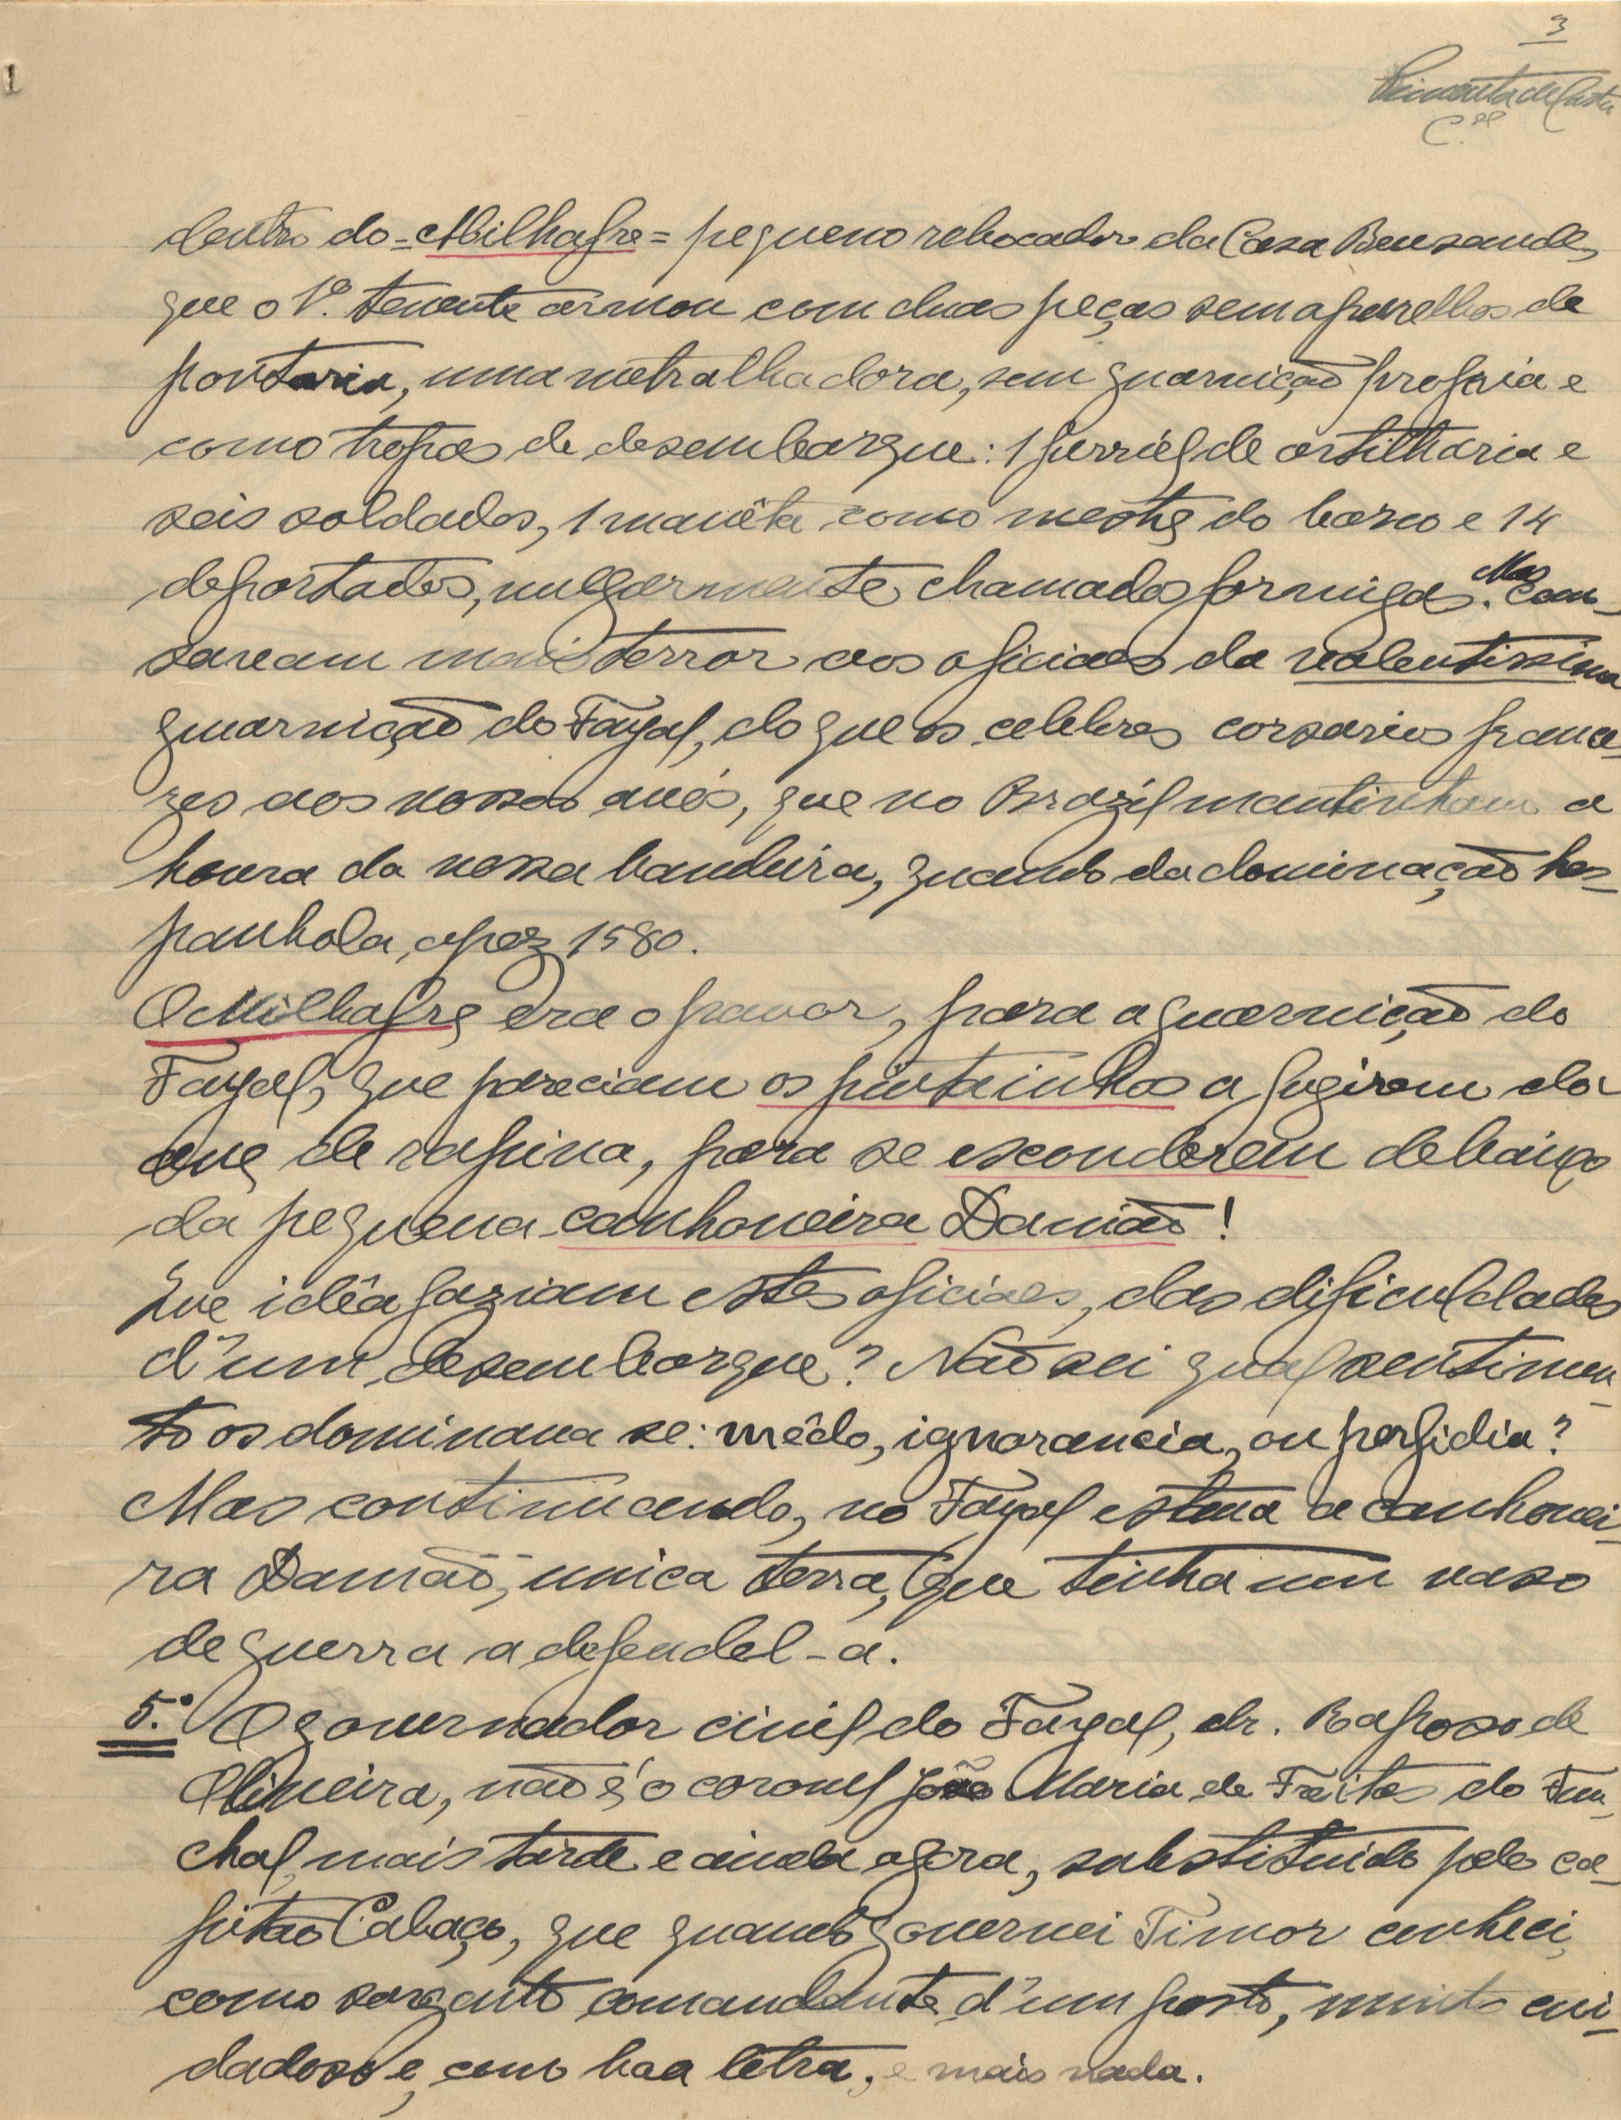 3
Pimenta de Castro
C.el
dentro do = Milhafre = pequeno rebocador da Casa Bensaude,
que o 1º. tenente armou com duas peças sem aparelhos de
pontaria, uma metralhadora, sem guarnição propria e
como tropas de desembarque: 1 furriél de artilharia e
seis soldados, 1 manêta como mestre do barco e 14
deportados, vulgarmente chamados formigas. Mas cau-
savam mais terror aos oficiaes da valentissima
guarnição do Fayal, do que os celebres corsarios france-
zes aos nossos avós, que no Brazil mantinham a
honra da nossa bandeira, quando da dominação hes-
panhola, apoz 1580.
O Milhafre era o pavor, para a guarnição do
Fayal, que pareciam os pintainhos a fugirem da
ave de rapina, para se esconderem debaixo
da pequena canhoneira Damão!
Que idêa faziam estes oficiaes, das dificuldades
d'um desembarque? Não sei qual sentimen-
to os dominava se: mêdo, ignorancia, ou perfidia?
Mas continuando, no Fayal estava a canhonei-
ra Damão, unica terra, que tinha um vaso
de guerra a defendel-a.
5.º O governador civil do Fayal, dr. Raposo de
Oliveira, não é o coronel João Maria de Freitas do Fun-
chal, mais tarde e ainda agora, substituido pelo ca-
pitão Cabaço, que quando governei Timor conheci,
como sargento comandante d'um posto, muito cui-
dadoso e, com boa letra, e mais nada.